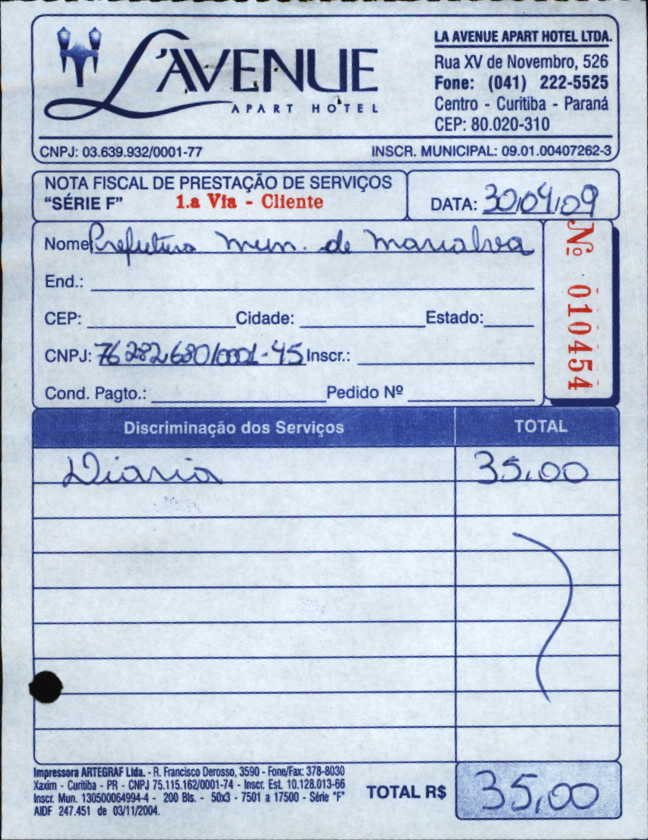 L'AVENUE
APART HOTEL
LA AVENUE APART HOTEL LTDA.
Rua XV de Novembro, 526
Fone: (041) 222-5525
Centro - Curitiba - Paraná
CEP: 80.020-310
CNPJ: 03.639.932/0001-77 INSCR. MUNICIPAL: 09.01.00407262-3
NOTA FISCAL DE PRESTAÇÃO DE SERVIÇOS
"SÉRIE F" 1.a Via - Cliente
DATA: 30/04/09
Nome: Prefeitura Mun. de Marialva
Nº 010454
End.:
CEP: Cidade: Estado:
CNPJ: 76 282 680/0001-45 Inscr.:
Cond. Pagto.: Pedido Nº
Discriminação dos Serviços TOTAL
Diaria 35,00
Impressora ARTEGRAF Ltda. - R. Francisco Derosso, 3590 - Fone/Fax: 378-8030
Xaxim - Curitiba - PR - CNPJ 75.115.162/0001-74 - Inscr. Est. 10.128.013-66
Inscr. Mun. 130500064994-4 - 200 Bls. - 50x3 - 7501 a 17500 - Série "F"
AIDF 247.451 de 03/11/2004.
TOTAL R$ 35,00